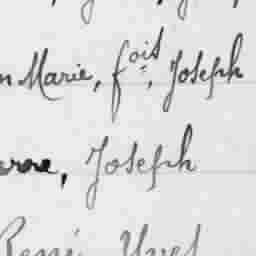 n Marie, fois, Joseph
erre, Joseph
René Yves